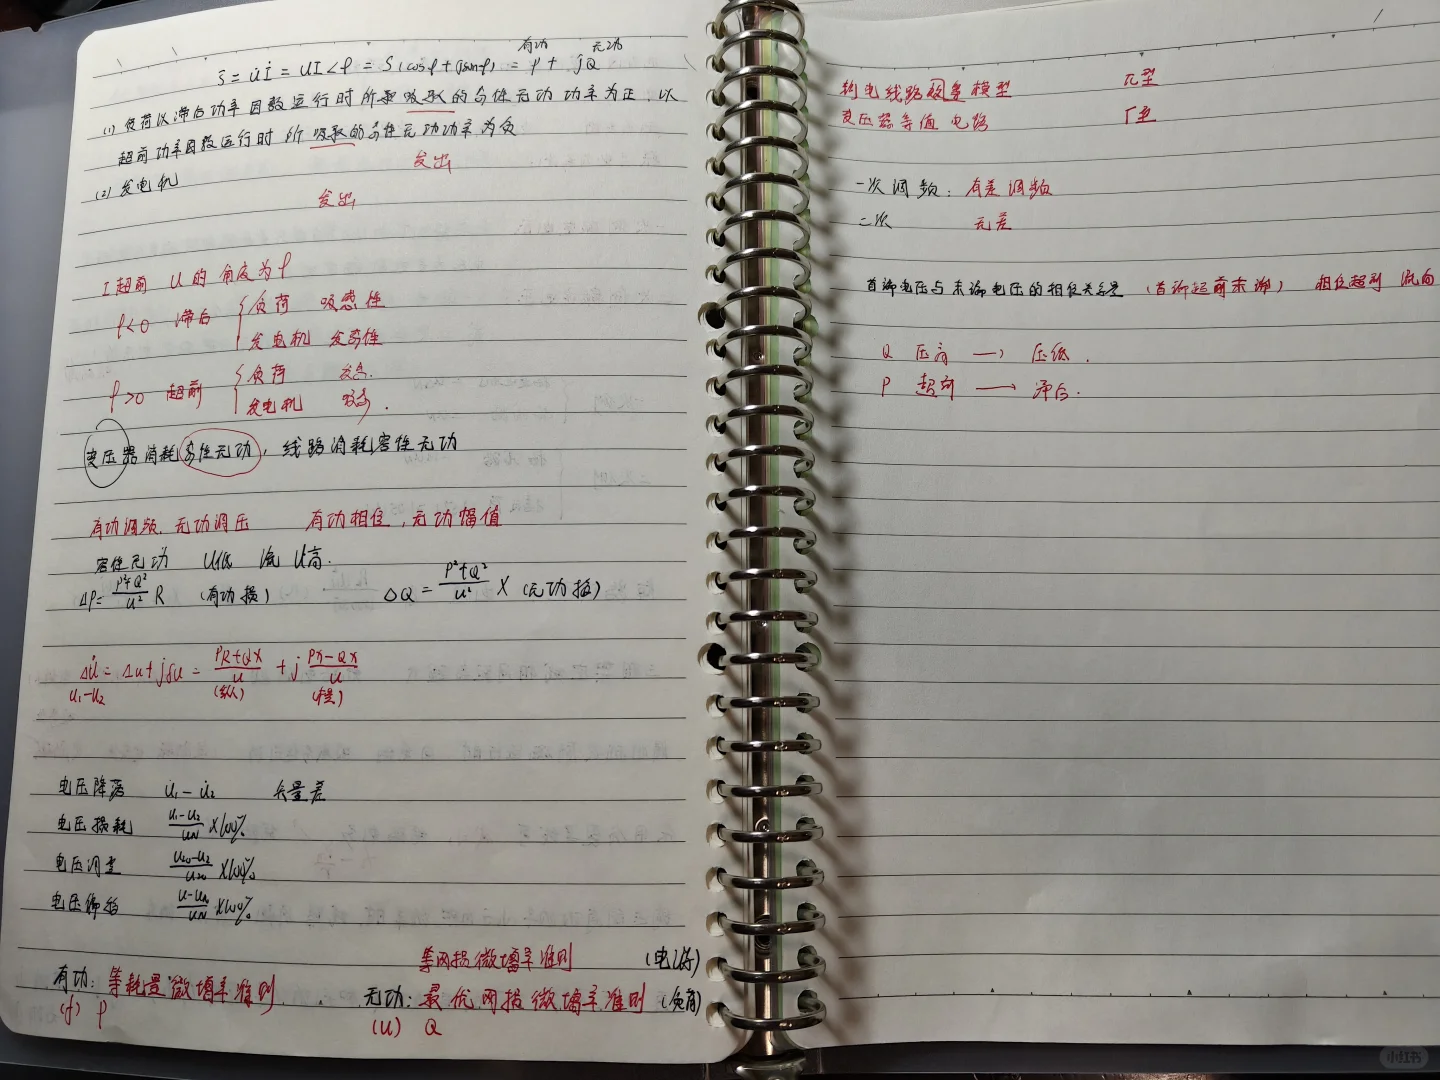 有功 无功
S = u̇İ = UI∠φ = S(cosφ+jsinφ) = P + jQ
(1) 负荷以滞后功率因数运行时所吸取的感性无功功率为正，以
超前功率因数运行时所吸取的感性无功功率为负
发出
(2) 发电机
发出
I超前 U的角度为φ
φ<0 滞后 { 负荷 吸感性
发电机 发感性
φ>0 超前 { 负荷 发感.
发电机 吸感.
变压器消耗感性无功，线路消耗容性无功
有功调频.无功调压 有功相位,无功幅值
容性无功 U低 流 U高.
ΔP= P²+Q²/U² R (有功损) ΔQ = P²+Q²/U² X (无功损)
Δu̇ = Δu+jδu = PR+QX/U + j PX-QX/U
U₁-U₂ (纵) (横)
电压降落 u̇₁-u̇₂ 矢量差
电压损耗 U₁-U₂/UN ×100%
电压调整 U₂₀-U₂/U₂₀ ×100%
电压偏移 U-UN/UN ×100%
等网损微增率准则 (电源)
有功: 等耗量微增率准则. 无功: 最优网损微增率准则 (负荷)
(f) P (U) Q
输电线路 等值模型 π型
变压器等值电路 Γ型
一次调频: 有差调频
二次 无差
首端电压与末端电压的相位关系是 (首端超前末端) 相位超前 流向
Q 压高 → 压低.
P 超前 → 滞后.
小红书